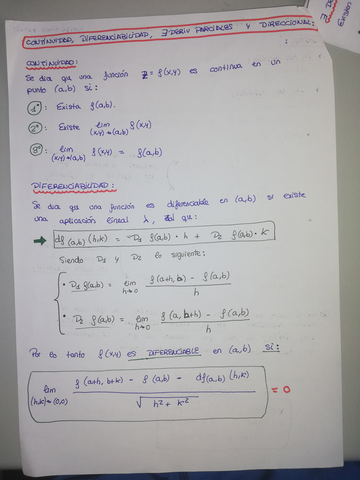 CONTINUIDAD, DIFERENCIABILIDAD, ∃ DERIV PARCIALES Y DIRECCIONAL:
CONTINUIDAD:
Se dice que una función z = f(x,y) es continua en un
punto (a,b) si:
1º: Exista f(a,b).
2º: Existe lim (x,y)→(a,b) f(x,y)
3º: lim (x,y)→(a,b) f(x,y) = f(a,b)
DIFERENCIABILIDAD:
Se dice que una función es diferenciable en (a,b) si existe
una aplicación lineal λ, tal que:
→ df(a,b)(h,k) = D1 f(a,b)·h + D2 f(a,b)·k
Siendo D1 y D2 lo siguiente:
• D1 f(a,b) = lim h→0 (f(a+h,b) - f(a,b)) / h
• D2 f(a,b) = lim h→0 (f(a,b+h) - f(a,b)) / h
Por lo tanto f(x,y) ES DIFERENCIABLE en (a,b) si:
lim (h,k)→(0,0) (f(a+h, b+k) - f(a,b) - df(a,b)(h,k)) / √(h²+k²) = 0